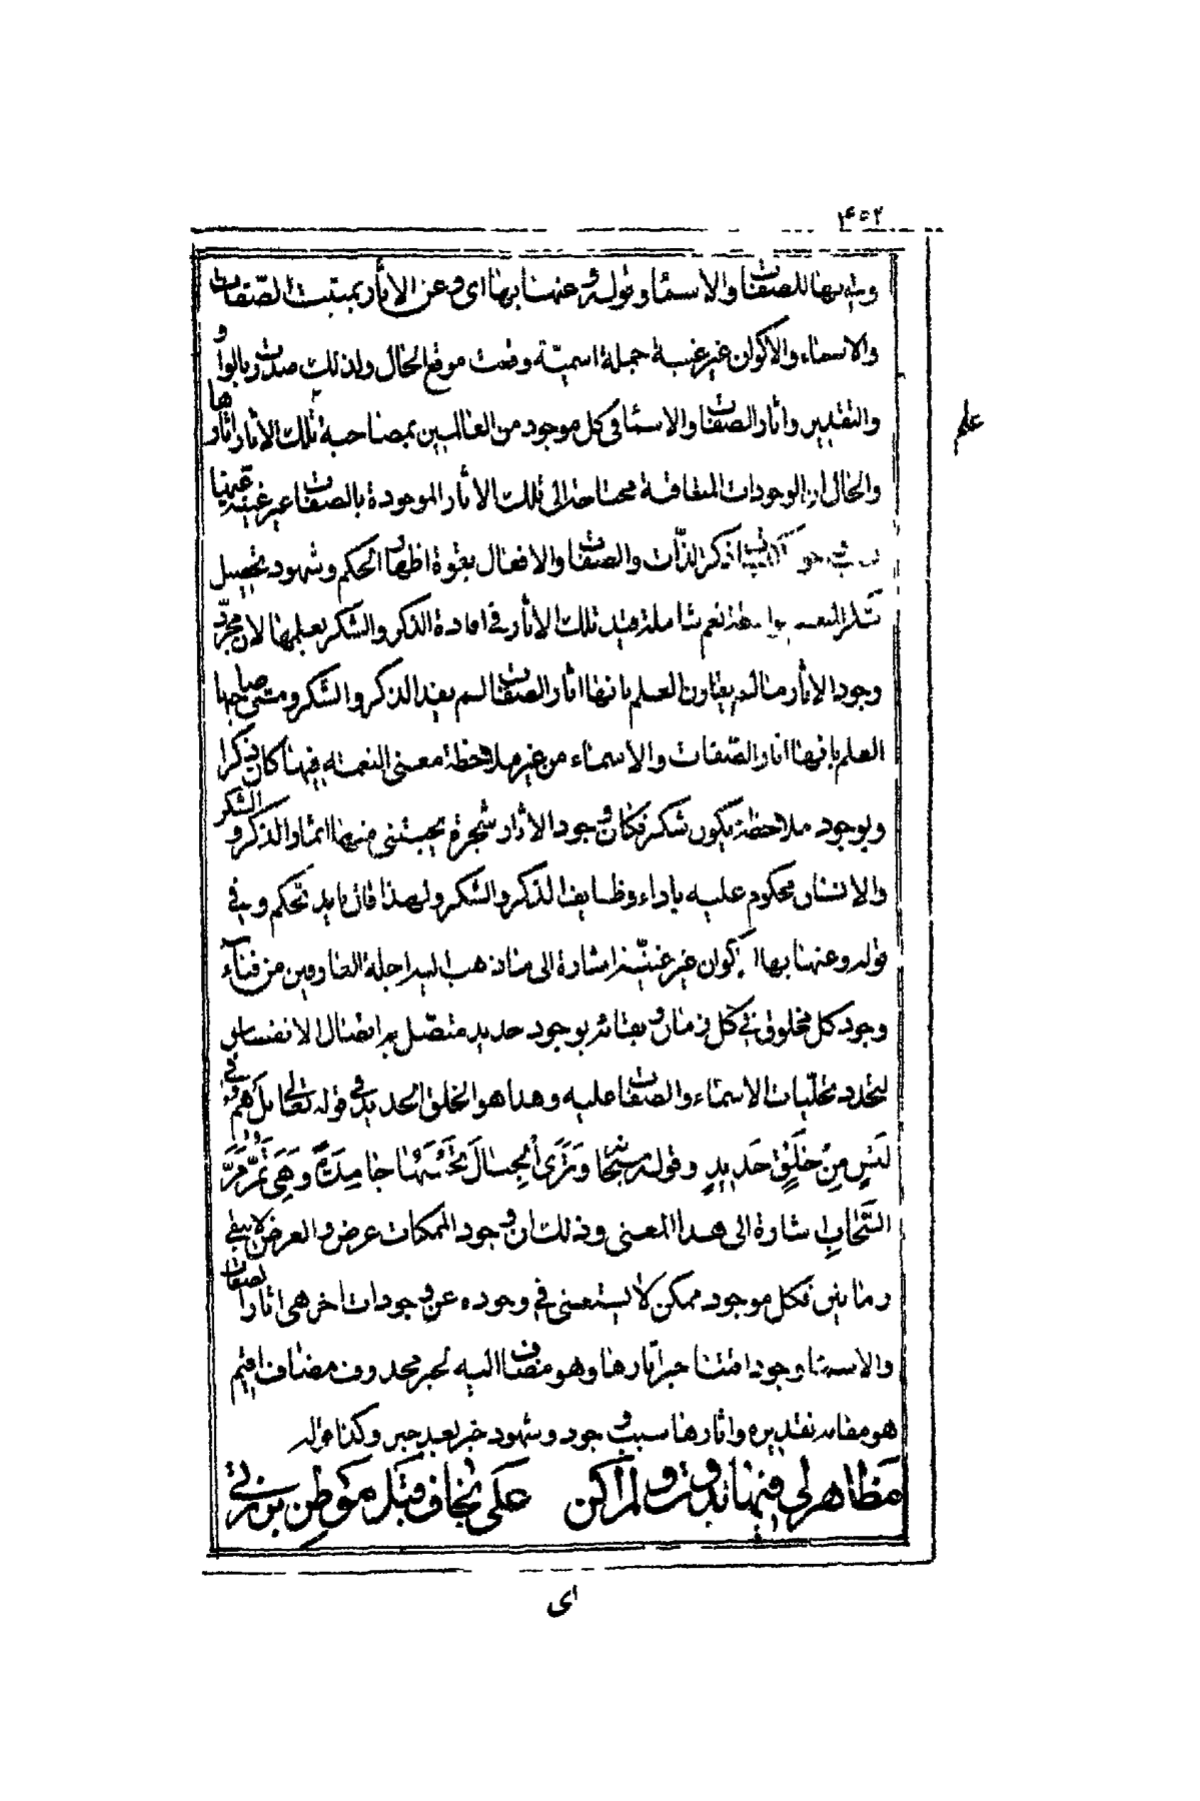 ٤٥٢
ونسبتها للصفات والاسماء وقوله وعنها بها اى وعن الآثار بمثبت الصفات
والاسماء والاكوان غير غنية جملة اسمية وقعت موقع الحال ولذلك صدرت بالواو
والتقدير واثار الصفات والاسماء فى كل موجود من العالمين بمصاحبة تلك الاثار اثارها
علم
والحال ان الوجودات المتعاقبة محتاجة الى تلك الاثار الموجودة بالصفات غير غنية عنها
ذكر الذات والصفات والافعال بقوة اظهار الحكم وشهود تحصيل
نعم شاملة قيد تلك الاثار فى افادة الذكر والشكر بعلمها لان مجرد
وجود الاثار ما لم يقارن العلم بانها اثار الصفات لم يفد الذكر والشكر ومتى صاحبها
العلم بانها اثار الصفات والاسماء من غير ملاحظة معنى النعمة فيها كان ذكرا
وبوجود ملاحظته يكون شكر فكان وجود الاثار شجرة يجتنى منها اثمار الذكر والشكر
والانسان محكوم عليه باداء وظايف الذكر والشكر ولهذا قال بايد تحكم وفى
قوله وعنها بها الاكوان غير غنية اشارة الى ما ذهب اليه اجلة العارفين من فناء
وجود كل مخلوق فى كل زمان وبقائه بوجود جديد متصل به اتصال الانفاس
لتجدد تجليات الاسماء والصفات عليه وهذا هو الخلق الجديد فى قوله تعالى بل هم فى
لَبْسٍ مِنْ خَلْقٍ جَدِيدٍ وقوله سبحانه وَتَرَى الْجِبَالَ تَحْسَبُهَا جَامِدَةً وَهِيَ تَمُرُّ مَرَّ
السَّحَابِ اشارة الى هذا المعنى وذلك ان وجود الممكنات عرض والعرض لا يبقى
زمانين فكل موجود ممكن لا يستغنى فى وجوده عن وجودات اخر هى اثار الصفات
والاسماء وجود اقتنا خبر آثارها وهو مضاف اليه لخبر محذوف مضاف اقيم
هو مقامه تقديره واثارها سبب وجود وشهود خبر بعد خبر وكذا قوله
مَظَاهِر لى فيها بَدَوْتُ وَلَمْ اكن عَلَىَّ بخاف قَبْل مَوْطِن بَرْزَتى
اى